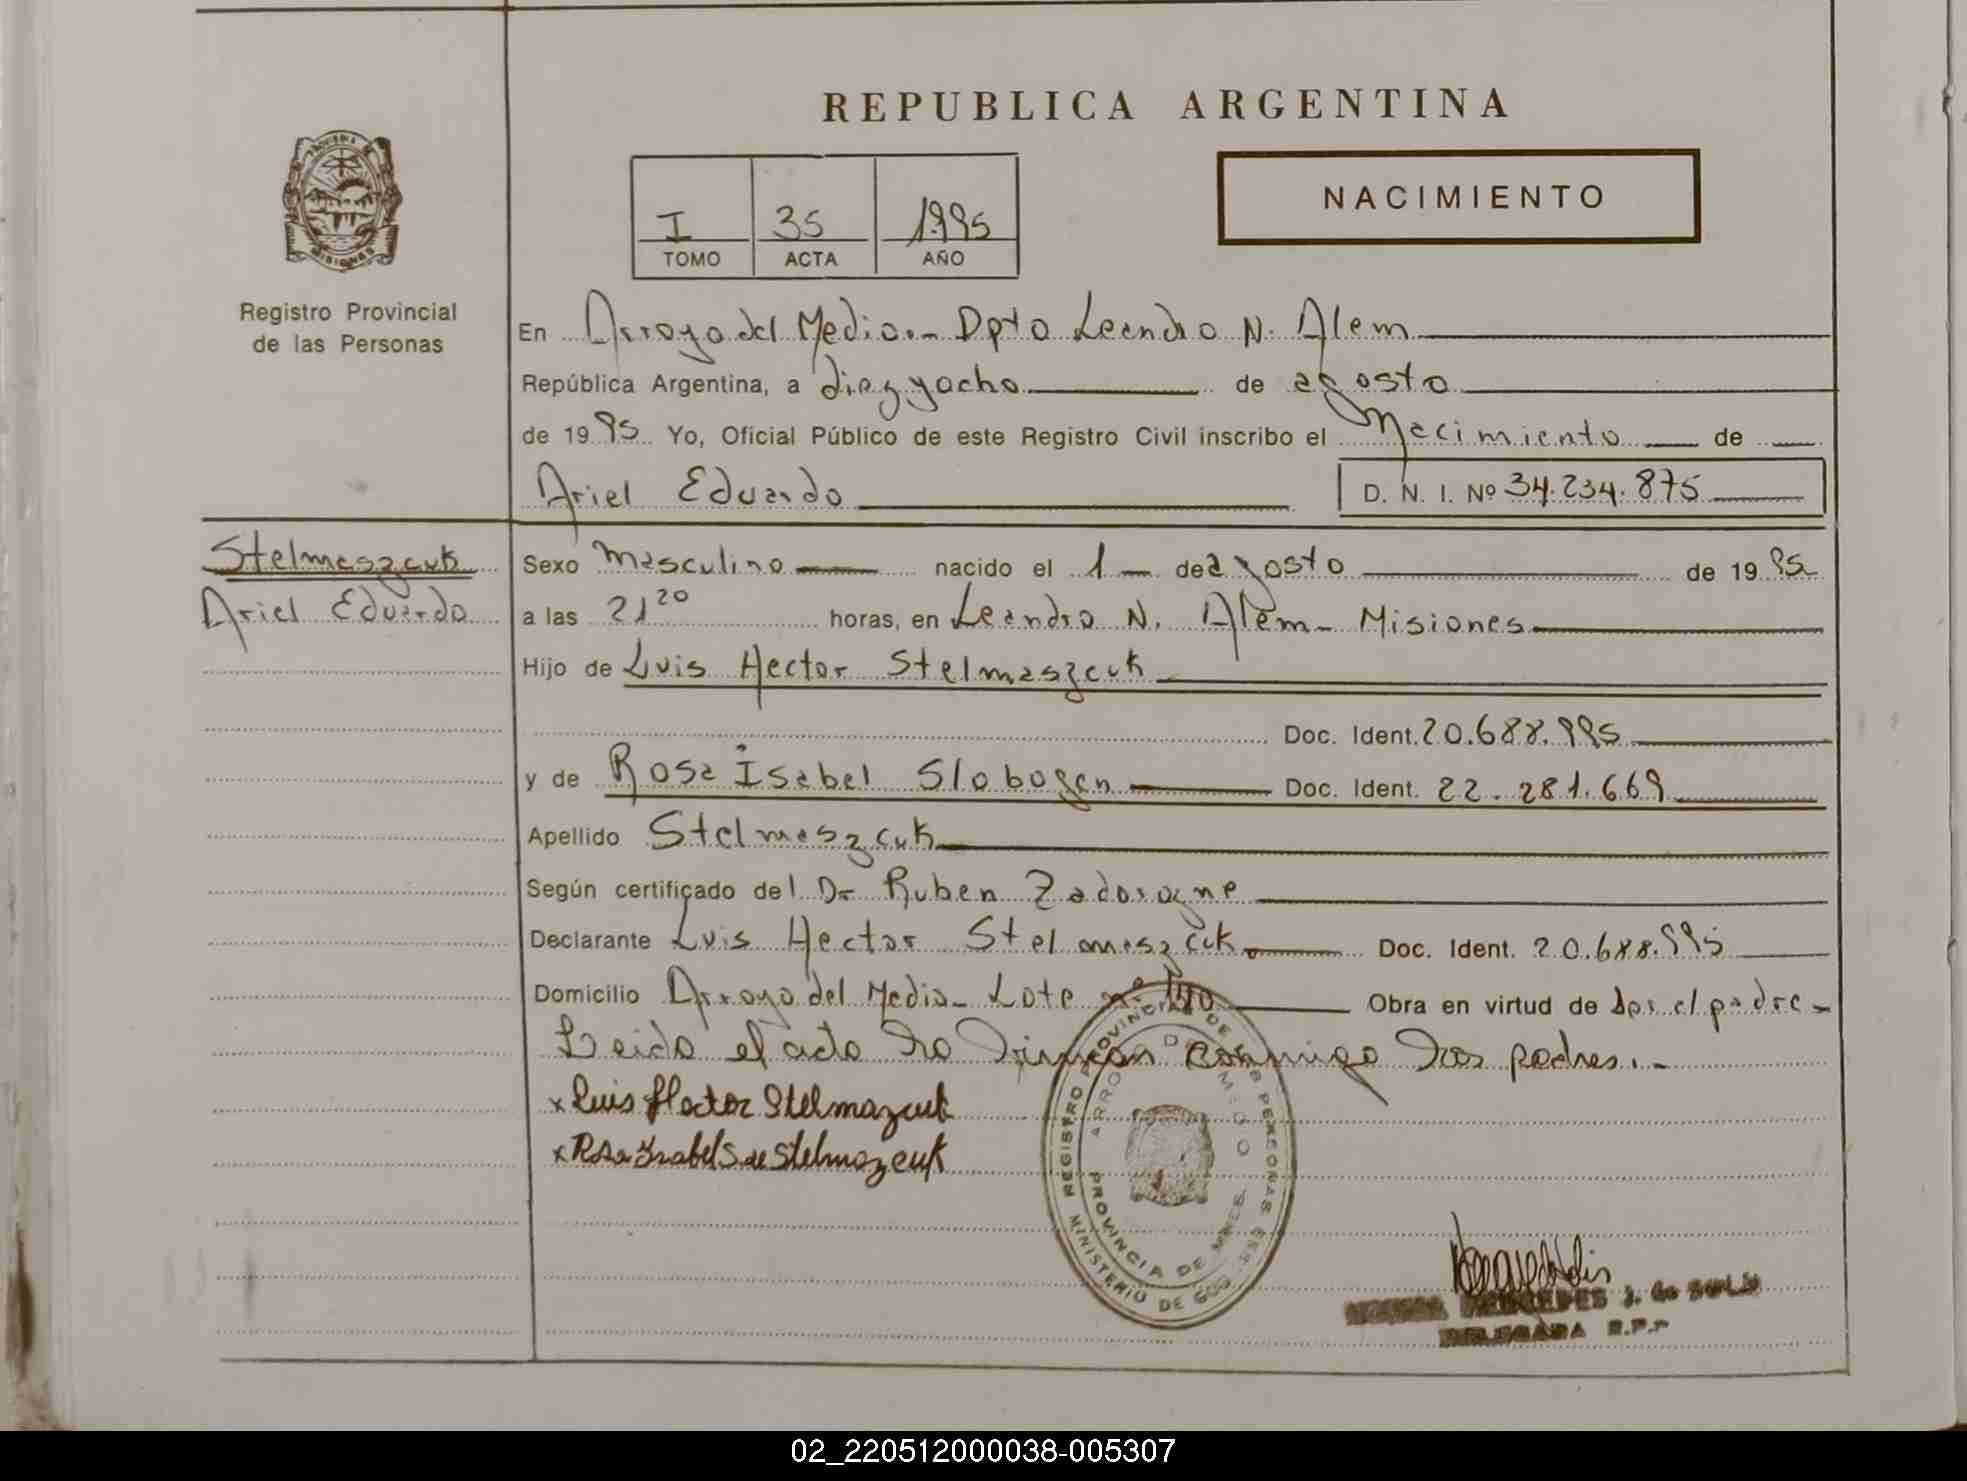 REPUBLICA ARGENTINA
NACIMIENTO
I 35 1995
TOMO ACTA AÑO
PROVINCIA
MISIONES
Registro Provincial
de las Personas
En Arroyo del Medio.- Dpto Leandro N. Alem
República Argentina, a diez y ocho de agosto
de 1995 Yo, Oficial Público de este Registro Civil inscribo el Nacimiento de
Ariel Eduardo D. N. I. Nº 34.234.875
Stelmaszcuk
Ariel Eduardo
Sexo Masculino nacido el 1 de agosto de 1995
a las 21 20 horas, en Leandro N. Alem - Misiones
Hijo de Luis Hector Stelmaszcuk
Doc. Ident. 20.688.995
y de Rosa Isabel Slobogen Doc. Ident. 22.281.669
Apellido Stelmaszcuk
Según certificado del Dr Ruben Zadorozne
Declarante Luis Hector Stelmaszcuk Doc. Ident. 20.688.995
Domicilio Arroyo del Medio - Lote nº 140 Obra en virtud de ser el padre -
Leido el acta lo firman conmigo los padres.-
x Luis Hector Stelmazcuk
x Rosa Isabel S de Stelmazcuk
REGISTRO PROVINCIAL DE LAS PERSONAS
PROVINCIA DE MNES.
MINISTERIO DE GOB
MERCEDES J. de
DELEGADA R.P.P
02_220512000038-005307